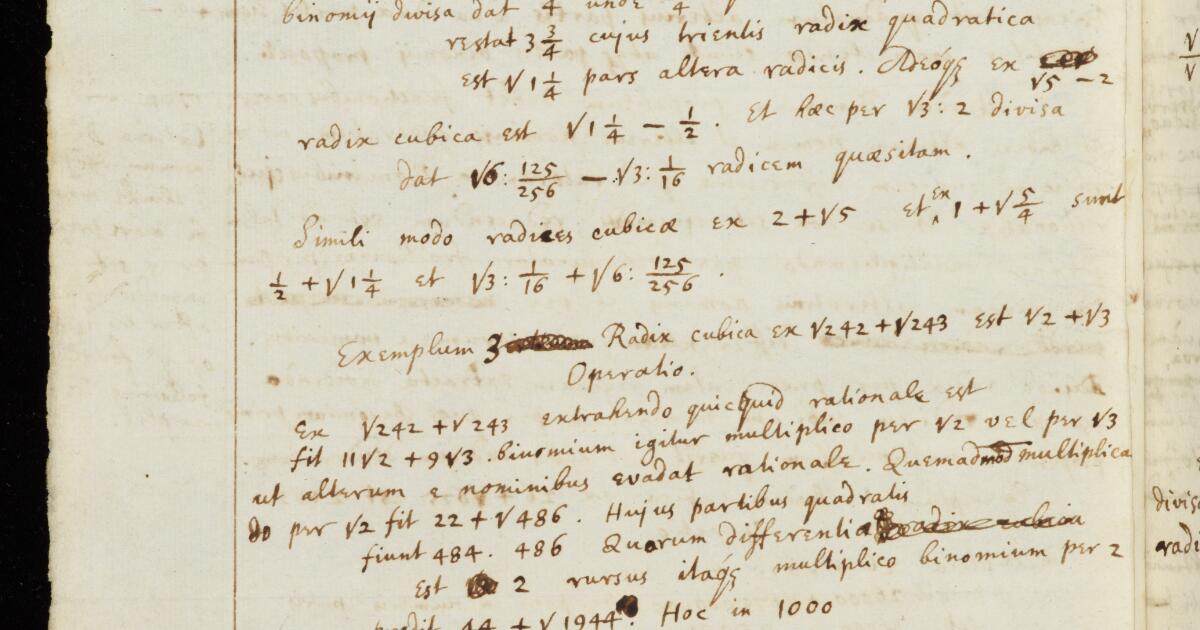 binomij divisa dat 4 unde 4
restat 3 3/4 cujus trientis radix quadratica
est √1 1/4 pars altera radicis. Adeóq₃ ex √5 - 2
radix cubica est √1 1/4 - 1/2. Et hæc per √3: 2 divisa
dat √6: 125/256 - √3: 1/16 radicem quæsitam.
Simili modo radices cubicæ ex 2 + √5 et ex 1 + √5/4 sunt
1/2 + √1 1/4 et √3: 1/16 + √6: 125/256.
Exemplum 3 Radix cubica ex √242 + √243 est √2 + √3
Operatio.
Ex √242 + √243 extrahendo quicquid rationale est
fit 11√2 + 9√3. binomium igitur multiplico per √2 vel per √3
ut alterum e nominibus evadat rationale. Quemadmod multiplica
do per √2 fit 22 + √486. Hujus partibus quadratis
fiunt 484. 486 Quorum differentia
est 2 rursus itaq₃ multiplico binomium per 2
prodit 44 + √1944. Hoc in 1000
√
√
divisa
radi